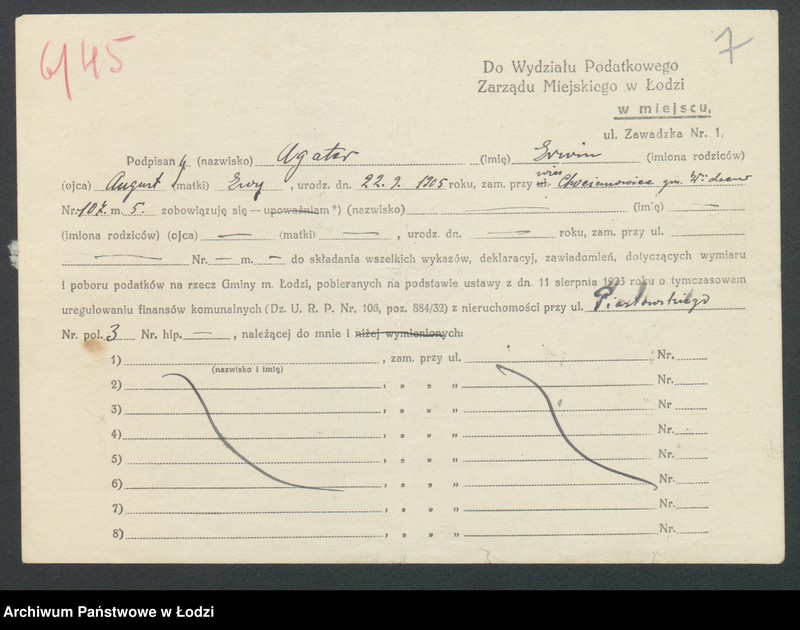 6/45
7
Do Wydziału Podatkowego
Zarządu Miejskiego w Łodzi
w miejscu.
ul. Zawadzka Nr. 1.
Podpisan y (nazwisko) Agater (imię) Erwin (imiona rodziców)
wieś
(ojca) August (matki) Ewy , urodz. dn. 22.9.1905 roku, zam. przy ul. Chocianowice gm. Widzew
Nr. 107 m. 5. zobowiązuję się — upoważniam *) (nazwisko) — (imię) —
(imiona rodziców) (ojca) — (matki) — , urodz. dn. — roku, zam. przy ul.
— Nr. — m. — do składania wszelkich wykazów, deklaracyj, zawiadomień, dotyczących wymiaru
i poboru podatków na rzecz Gminy m. Łodzi, pobieranych na podstawie ustawy z dn. 11 sierpnia 1923 roku o tymczasowem
uregulowaniu finansów komunalnych (Dz. U. R. P. Nr. 106, poz. 884/32) z nieruchomości przy ul. Piastowskiego
Nr. pol. 3 Nr. hip. — , należącej do mnie i niżej wymienionych:
1) , zam. przy ul. Nr.
(nazwisko i imię)
2) , „ „ „ Nr.
3) , „ „ „ Nr
4) , „ „ „ Nr.
5) , „ „ „ Nr.
6) , „ „ „ Nr.
7) , „ „ „ Nr.
8) , „ „ „ Nr.
Archiwum Państwowe w Łodzi